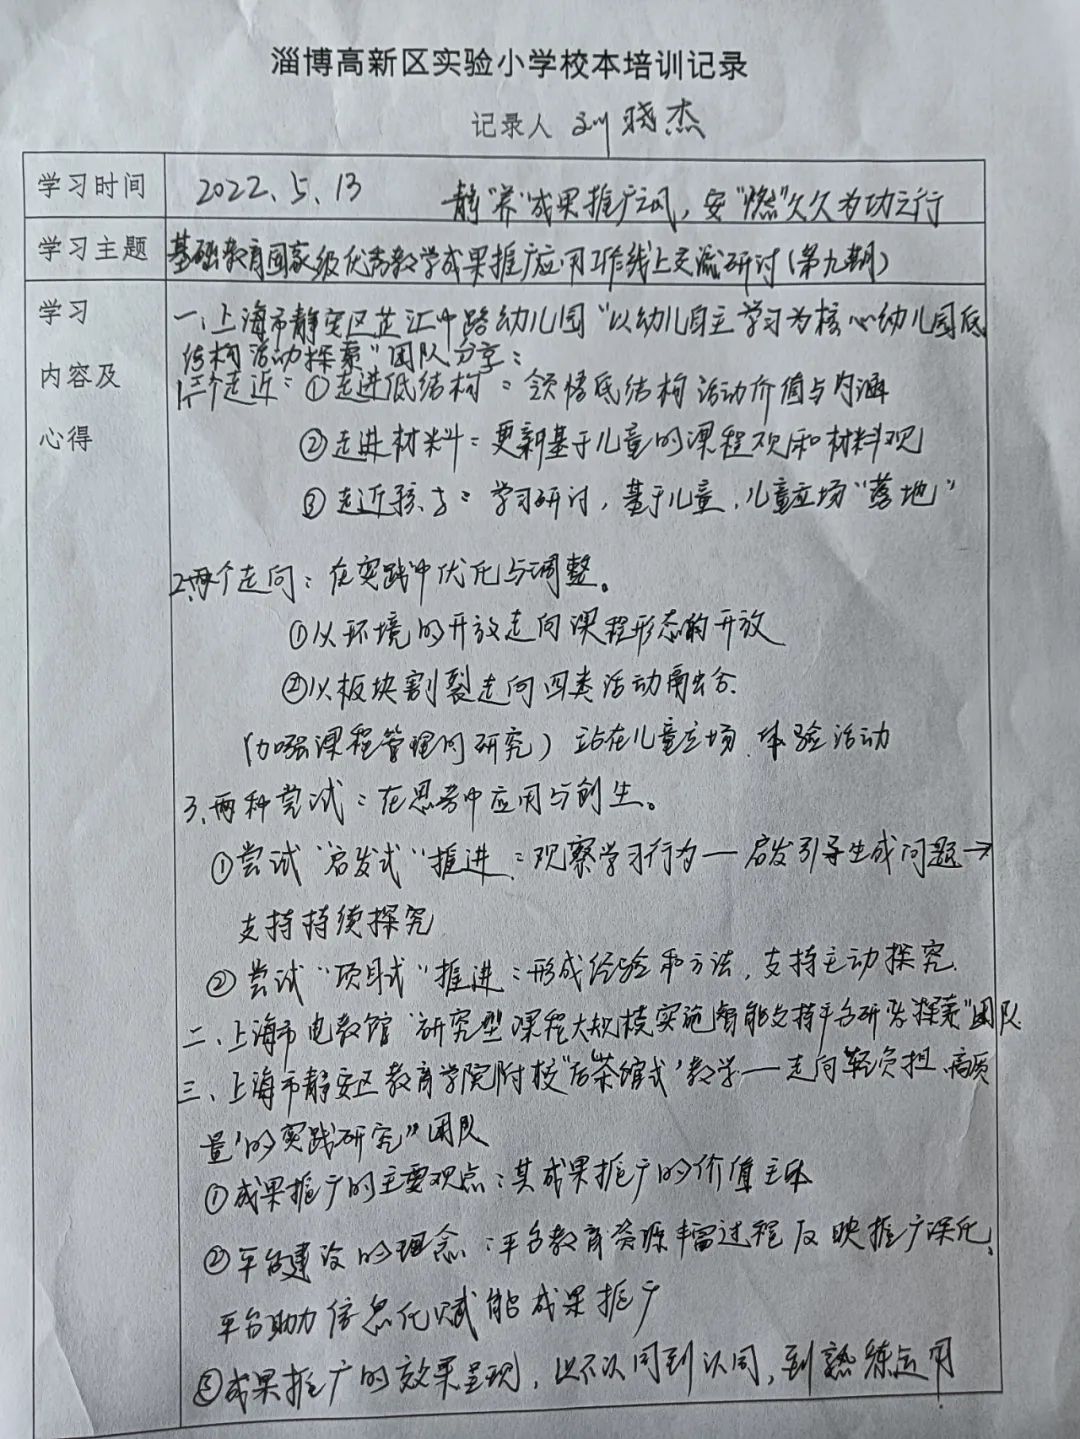 淄博高新区实验小学校本培训记录
记录人 刘晓杰
学习时间 2022.5.13 静"养"成果推广之风，安"燃"久久为功之行
学习主题 基础教育国家级优秀教学成果推广应用工作线上交流研讨(第九期)
学习
内容及
心得
一、上海市静安区芷江中路幼儿园"以幼儿自主学习为核心幼儿园低
结构活动探索"团队分享：
1、三个走近：①走进低结构：领悟低结构活动价值与内涵
②走进材料：更新基于儿童的课程观和材料观
③走近孩子：学习研讨，基于儿童、儿童立场"落地"
2、两个走向：在实践中优化与调整。
①从环境的开放走向课程形态的开放
②从板块割裂走向四类活动融合.
(加强课程管理的研究) 站在儿童立场、体验活动
3、两种尝试：在思考中应用与创生。
①尝试"启发式"推进：观察学习行为—启发引导生成问题→
支持持续探究
②尝试"项目式"推进：形成经验和方法，支持主动探究.
二、上海市电教馆"研究型课程大规模实施智能支持平台研发探索"团队
三、上海市静安区教育学院附校"后'茶馆式'教学—走向'轻负担、高质
量'的实践研究"团队
①成果推广的主要观点：其成果推广的价值主体
②平台建设的理念：平台教育资源丰富过程反映推广深化、
平台助力信息化赋能成果推广
③成果推广的效果呈现，从不认同到认同，到熟练运用